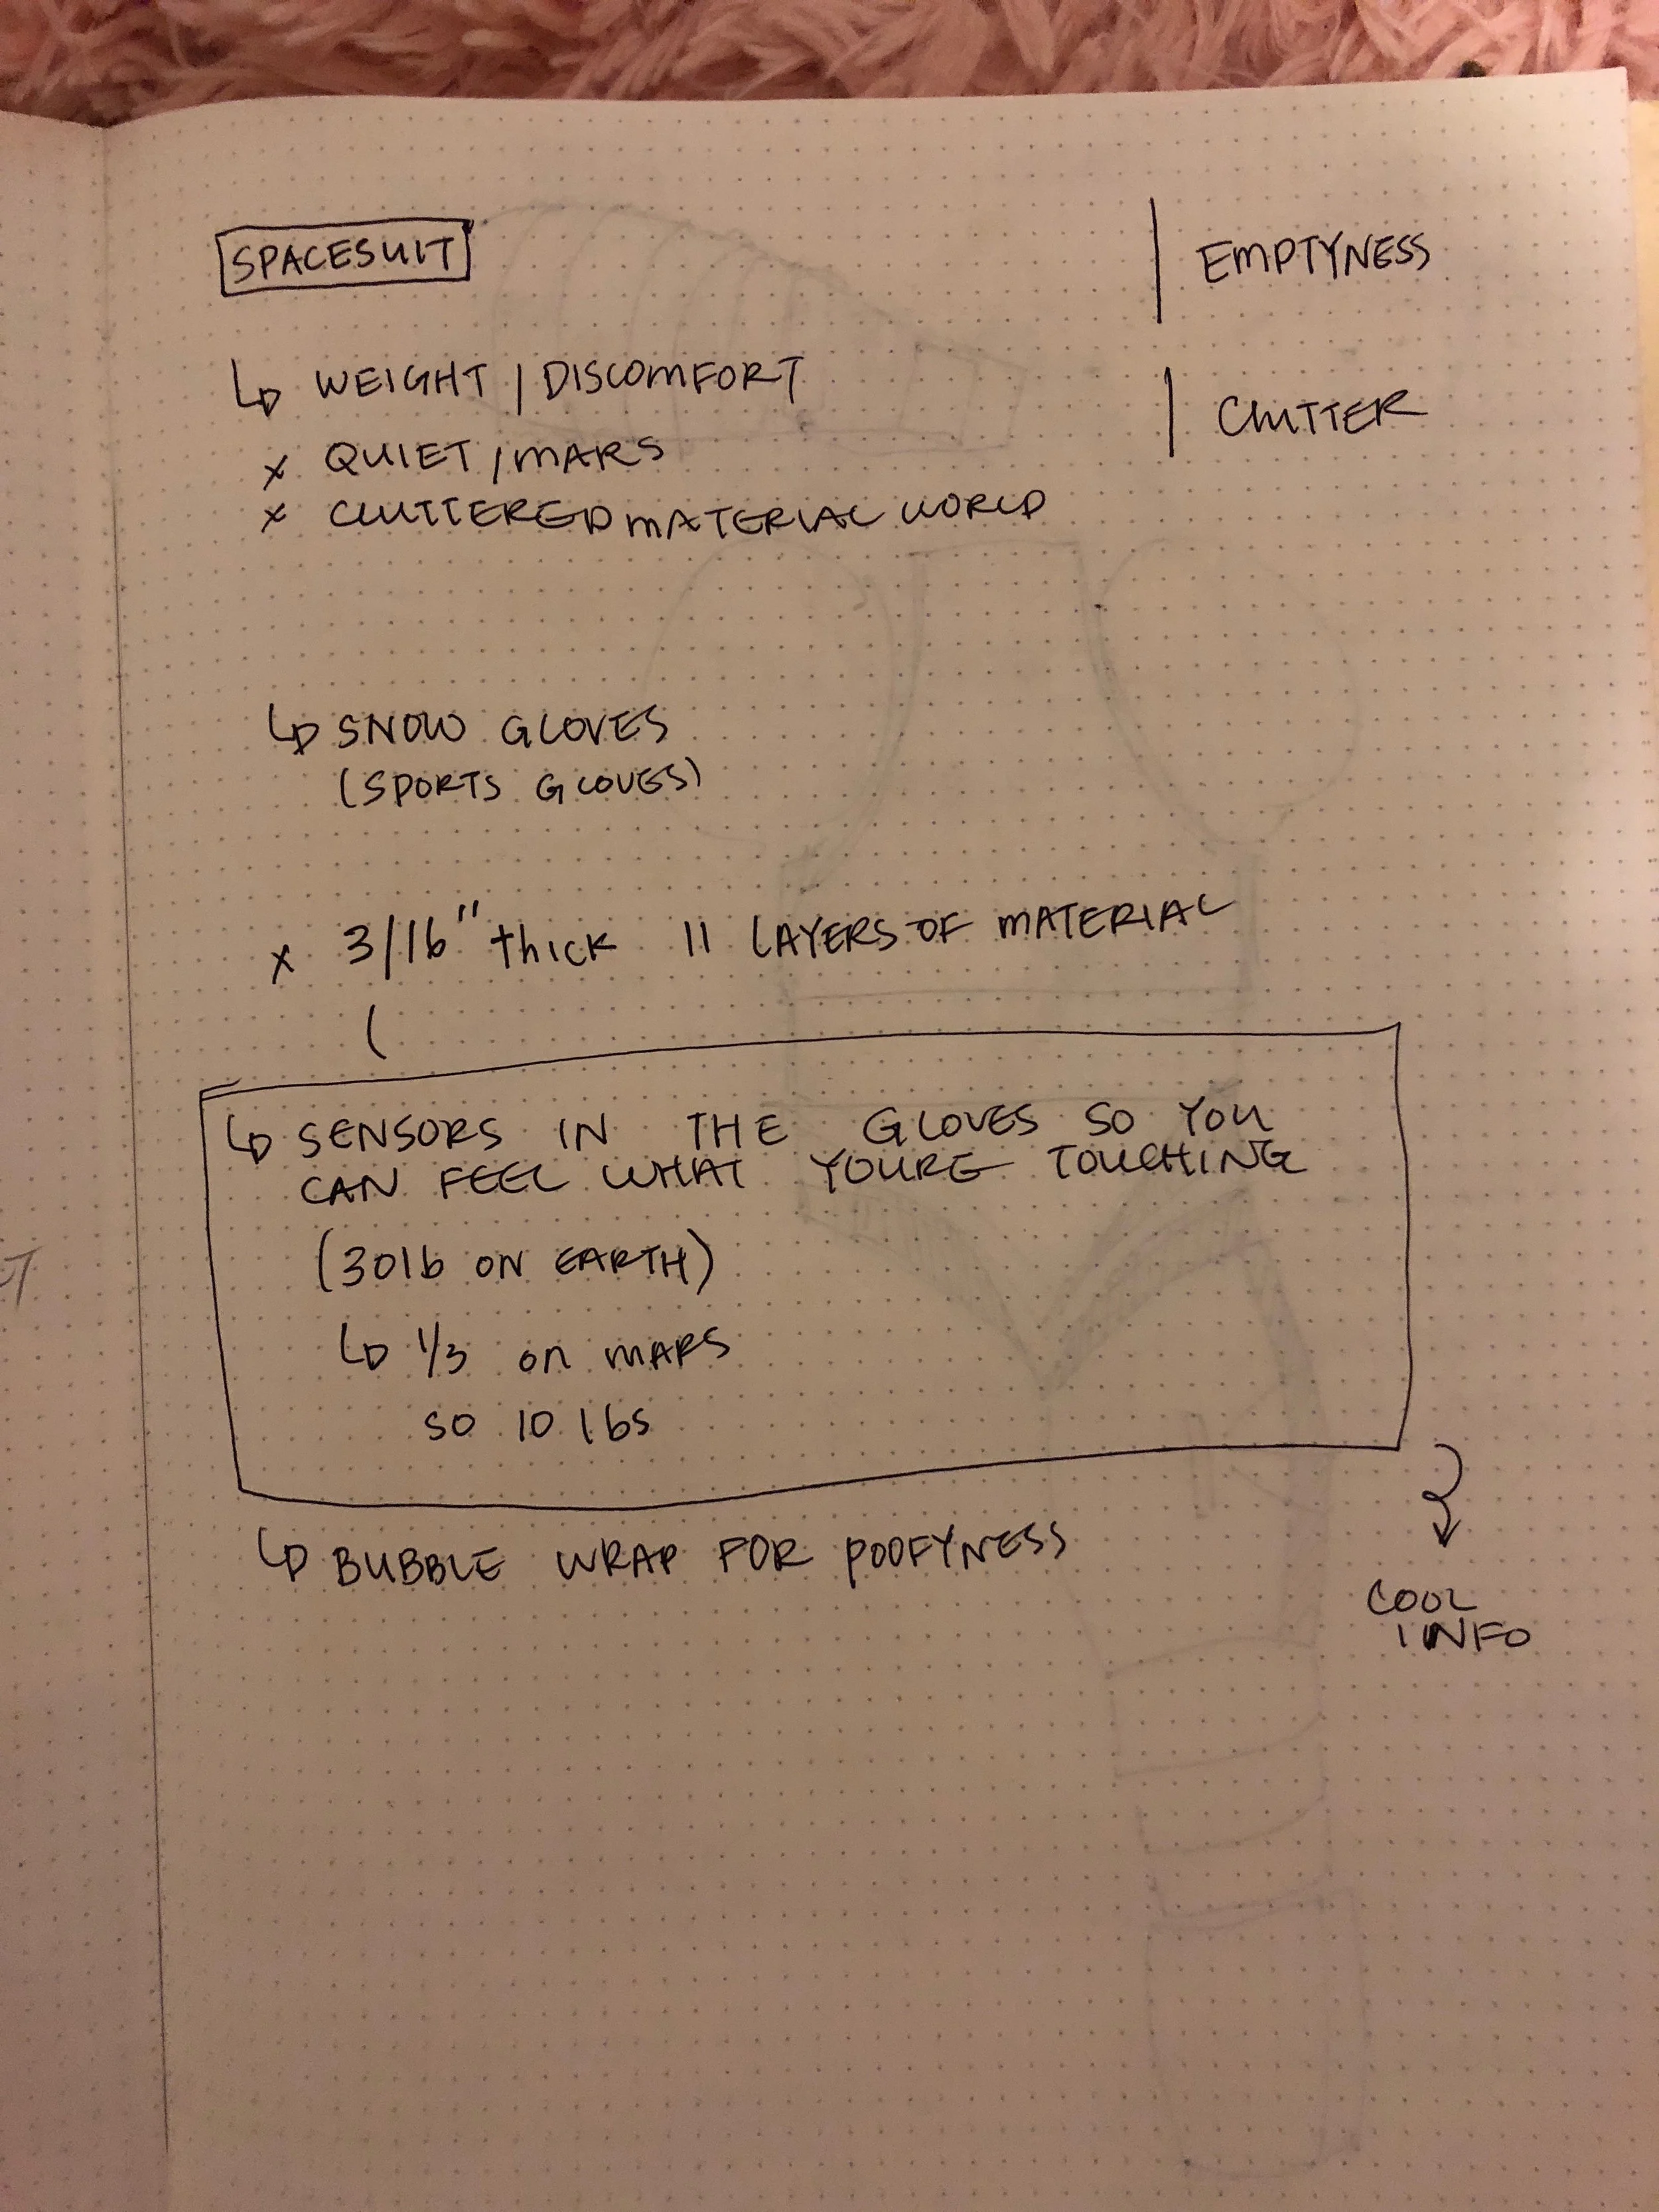 SPACESUIT
EMPTYNESS
WEIGHT / DISCOMFORT
CLUTTER
x QUIET / MARS
x CLUTTERED MATERIAL WORLD
SNOW GLOVES
(SPORTS GLOVES)
x 3/16" thick 11 LAYERS OF MATERIAL
(
SENSORS IN THE GLOVES SO YOU
CAN FEEL WHAT YOURE TOUCHING
(30lb ON EARTH)
1/3 on MARS
SO 10 lbs
BUBBLE WRAP FOR POOFYNESS
COOL
INFO